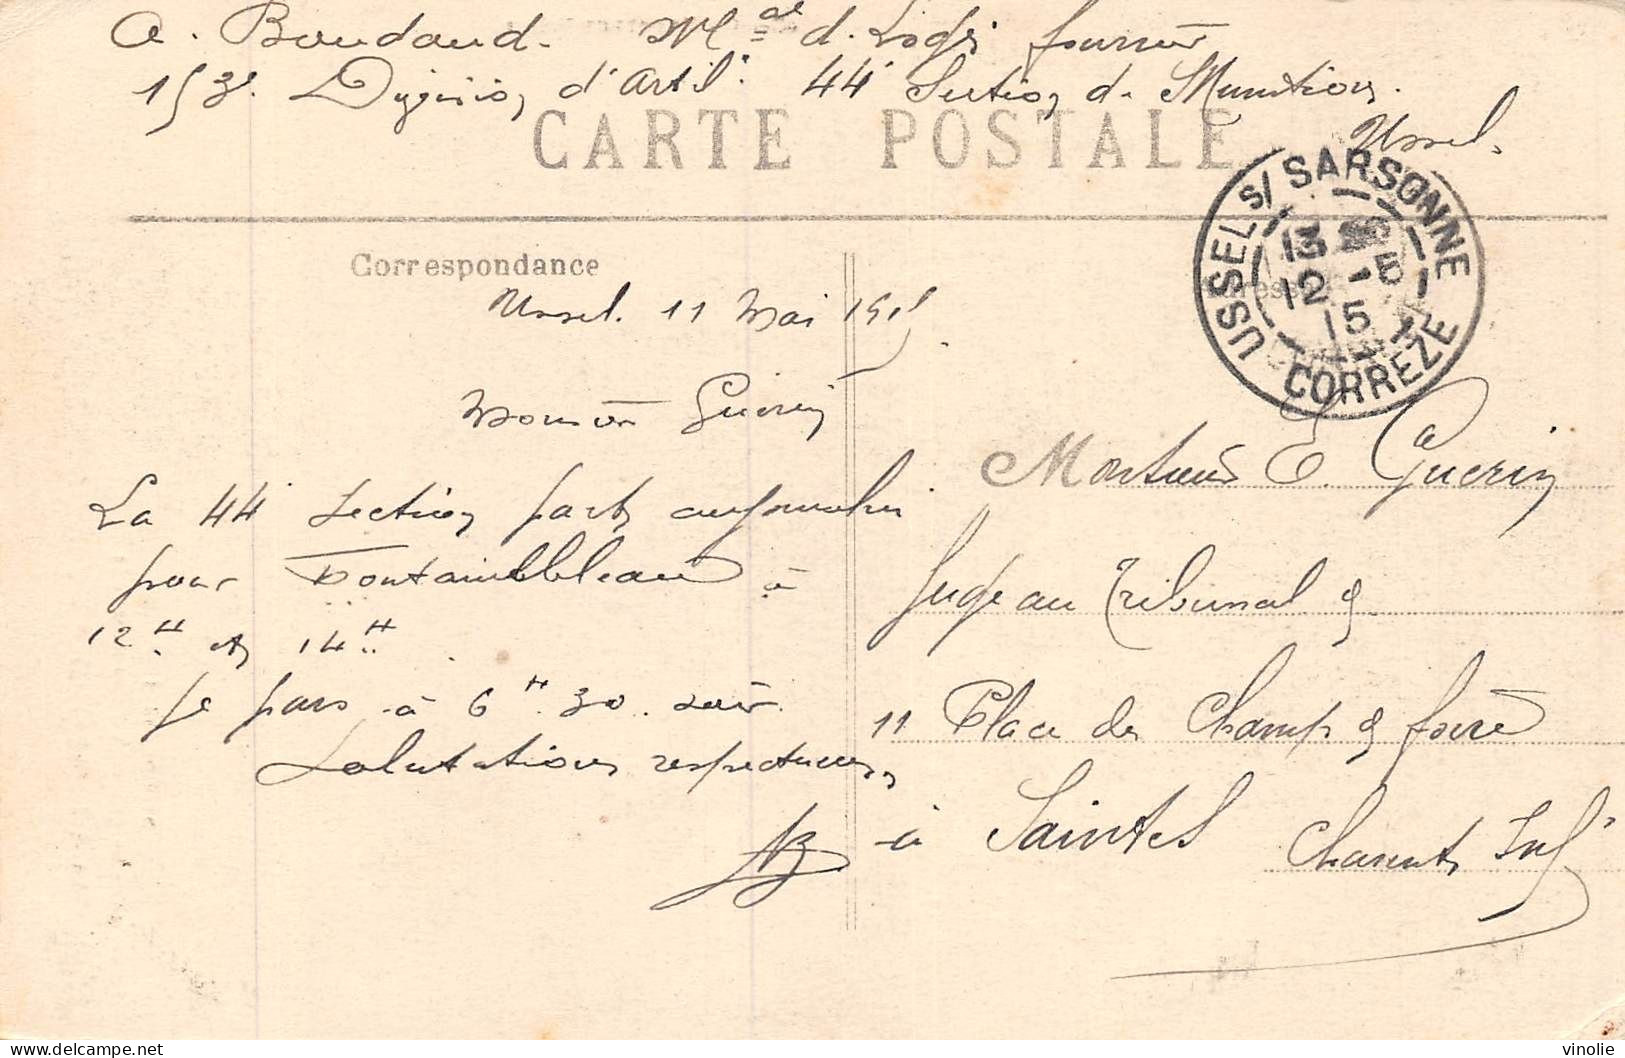 A. Baudaud. Mal d. Logis fourrier
153e Division d'Artil. 44e Section de Munitions.
Ussel.
CARTE POSTALE
USSEL S/ SARSONNE
13
12 -5
15
CORREZE
Correspondance
Ussel. 11 Mai 1915
Monsieur Guérin
La 44e Section part aujourd'hui
pour Fontainebleau à
12H et 14H
Je pars à 6H 30 soir
Salutations respectueuses
AB
Monsieur E. Guérin
Juge au Tribunal
11 Place du Champ de foire
à Saintes
Charente Inf.
vinolie